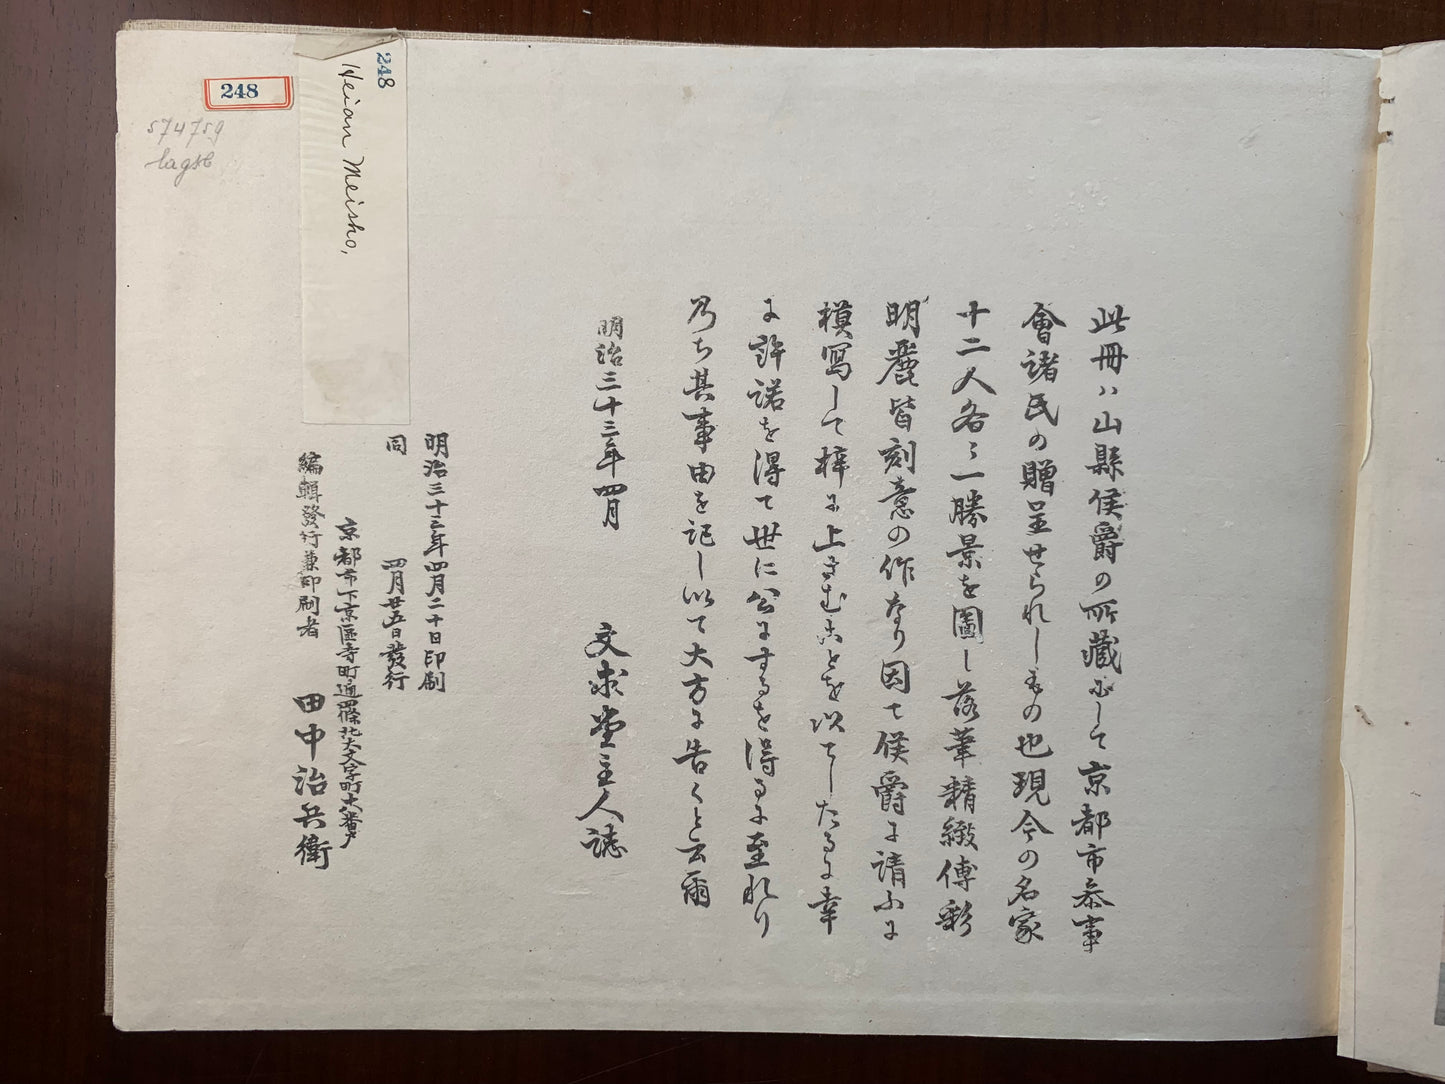 此冊ハ山縣侯爵の所藏にして京都市叅事
會諸氏の贈呈せられしもの也現今の名家
十二人各々一勝景を圖し落筆精緻傅彩
明麗皆刻意の作なり因て侯爵に請ふに
模寫して梓に上さむことを以てしたるに幸
に許諾を得て世に公にするを得るに至れり
乃ち其事由を記し以て大方に告くと云爾
明治三十三年四月
文求堂主人誌
明治三十三年四月二十日印刷
同 四月廿五日發行
京都市下京區寺町通四條北大文字町大番戸
編輯發行兼印刷者 田中治兵衛
248
Heian Meisho,
248
574759